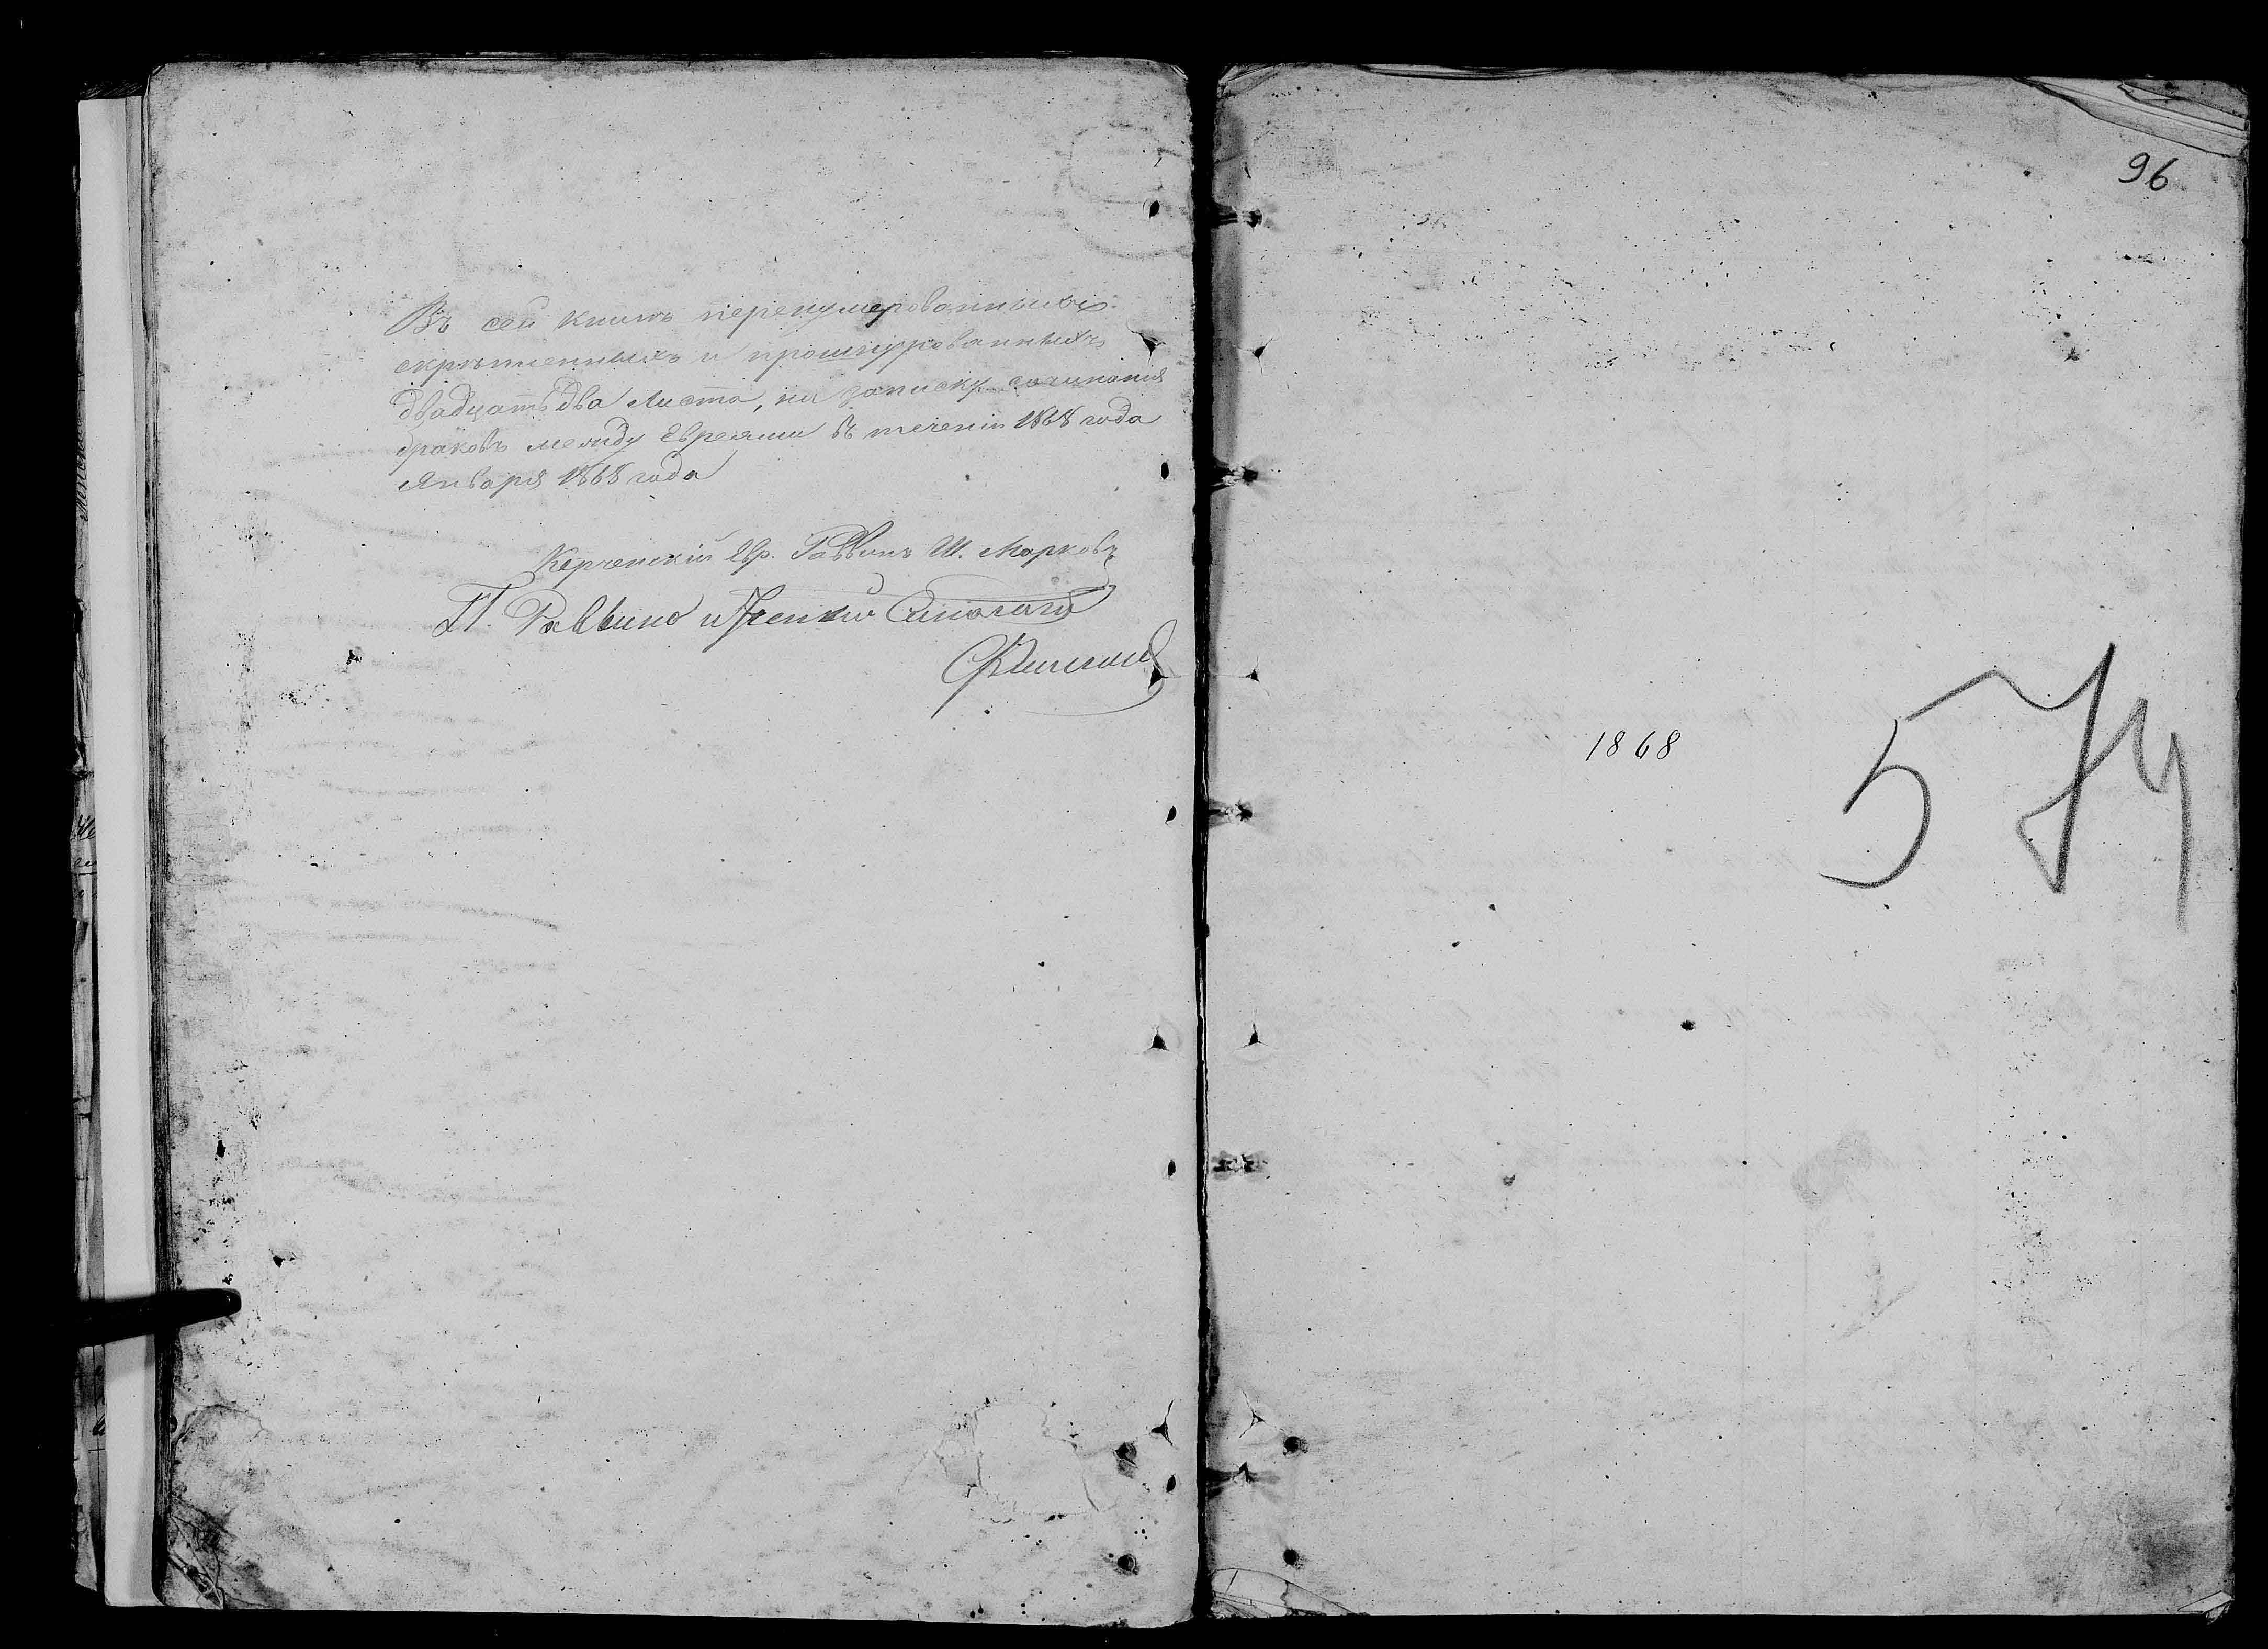 Въ сей книгѣ перенумерованныхъ
скрѣпленныхъ и прошнурованныхъ
двадцать два листа, на записку сочитанія
браковъ между Евреями въ теченіи 1868 года
Января 1868 года
Керченскій Евр. Раввинъ Ш. Марковъ
П. Раввина и Ученый Синагоги
96
1868
574